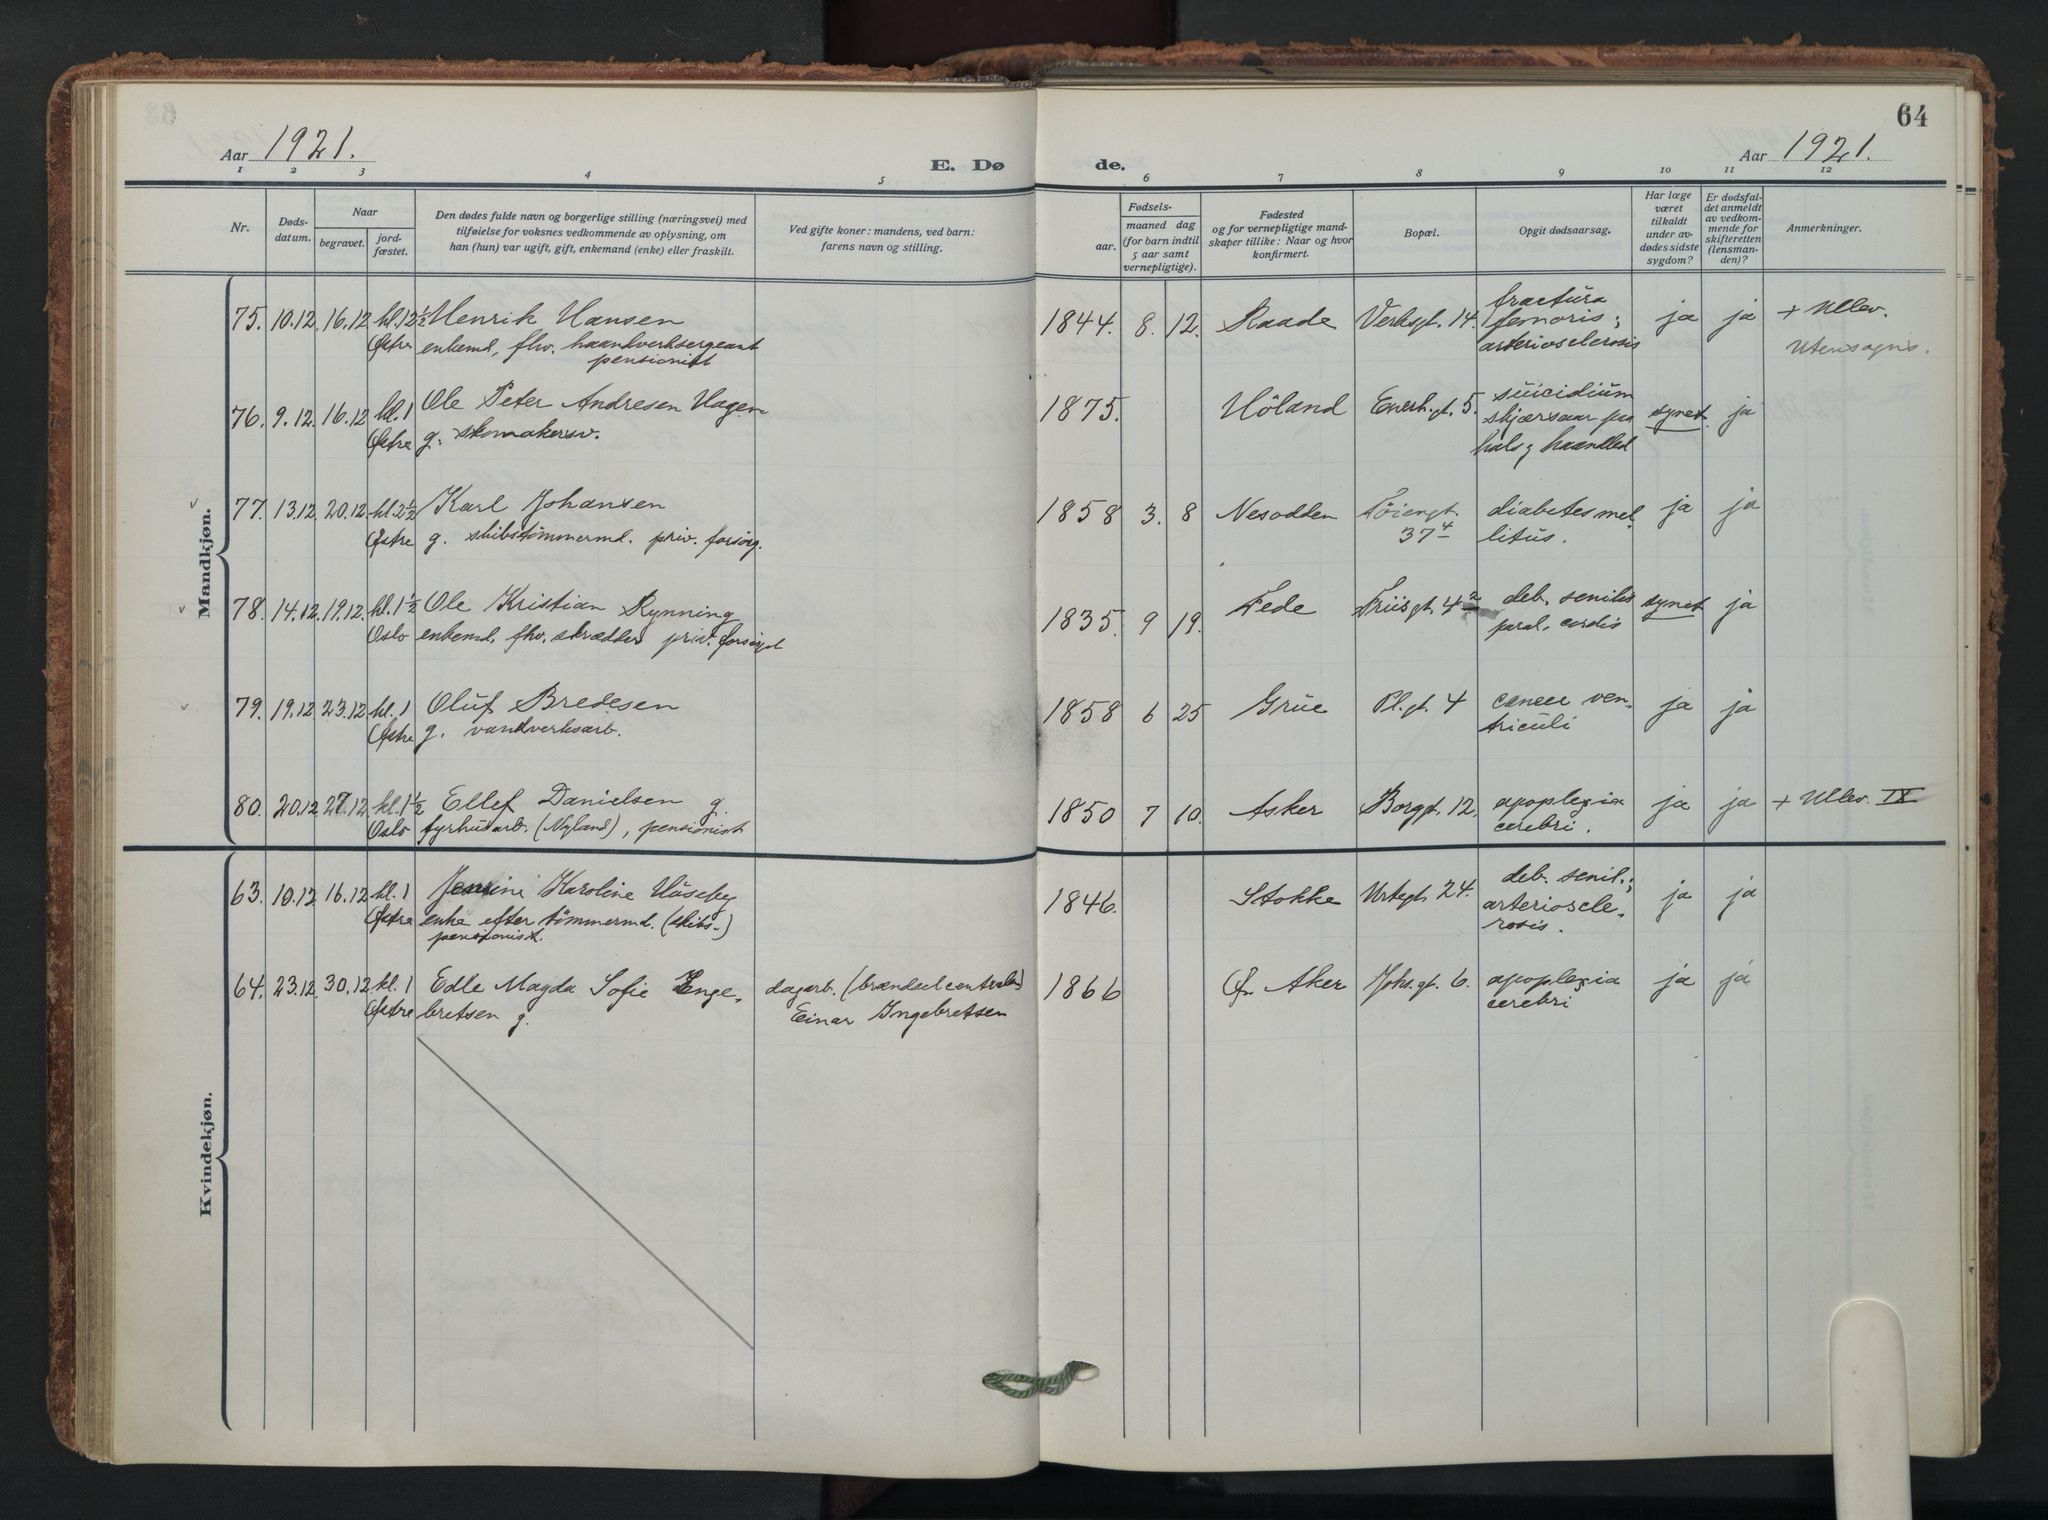 64
Aar 1921.
E. Døde.
Aar 1921.
1 2 3 4 5 6 7 8 9 10 11 12
Nr.
Døds-
datum.
Naar
begravet.
jord-
fæstet.
Den dødes fulde navn og borgerlige stilling (næringsvei) med
tilføielse for voksnes vedkommende av oplysning, om
han (hun) var ugift, gift, enkemand (enke) eller fraskilt.
Ved gifte koner: mandens, ved barn:
farens navn og stilling.
Fødsels-
aar.
maaned dag
(for barn indtil
5 aar samt
vernepligtige).
Fødested
og for vernepligtige mand-
skaper tillike: Naar og hvor
konfirmert.
Bopæl.
Opgit dødsaarsag.
Har læge
været
tilkaldt
under av-
dødes sidste
sygdom?
Er dødsfal-
det anmeldt
av vedkom-
mende for
skifteretten
(lensman-
den)?
Anmerkninger.
Mandkjøn.
75. 10.12 16.12 kl. 12½ Henrik Hansen 1844. 8. 12. Raade Verksgt. 14. fractura femoris; arteriosclerosis ja ja + Ullev.
Østre enkemd, fhv. haandverksergeant
pensionist
Utensogns.
76. 9.12. 16.12 kl. 1 Ole Peter Andresen Hagen 1875. Höland Enerh.gt. 5. suicidium skjærsaar paa hals & haandled synet. ja
Østre g. skomakersv.
77. 13.12. 20.12. kl. 2½ Karl Johansen 1858 3. 8 Nesodden Töiengt. 37 4 diabetes mellitus. ja ja
Østre g. skibstömmermd. priv. forsörg.
78. 14.12. 19.12. kl. 1½ Ole Kristian Rynning 1835. 9 19. Fede Friisgt. 4 2 deb. senilis paral. cordis synet ja
Oslo enkemd, fhv. skrædder priv. forsörget
79. 19.12 23.12 kl. 1 Oluf Bredesen 1858 6 25 Grue Pl.gt. 4 cancer ventriculi ja ja
Østre g. vandverksarb.
80. 20.12 27.12 kl. 1½ Ellef Danielsen g. 1850 7 10. Asker Borggt. 12. apoplexia cerebri. ja ja + Ullev. IX
Oslo fyrhusarb. (Nyland), pensionist
Kvindekjøn.
63. 10.12 16.12 kl. 1 Jensine Karoline Huseby 1846. Stokke Urtegt. 24. deb. senil.; arteriosclerosis. ja ja
Østre enke efter tömmermd. (skibs-)
pensionist.
64. 23.12. 30.12 kl. 1 Edle Magda Sofie Enge- dagarb. (brændselcentralen) 1866 Ø. Aker Johs.gt. 6. apoplexia cerebri ja ja
Østre bretsen g. Einar Ingebretsen